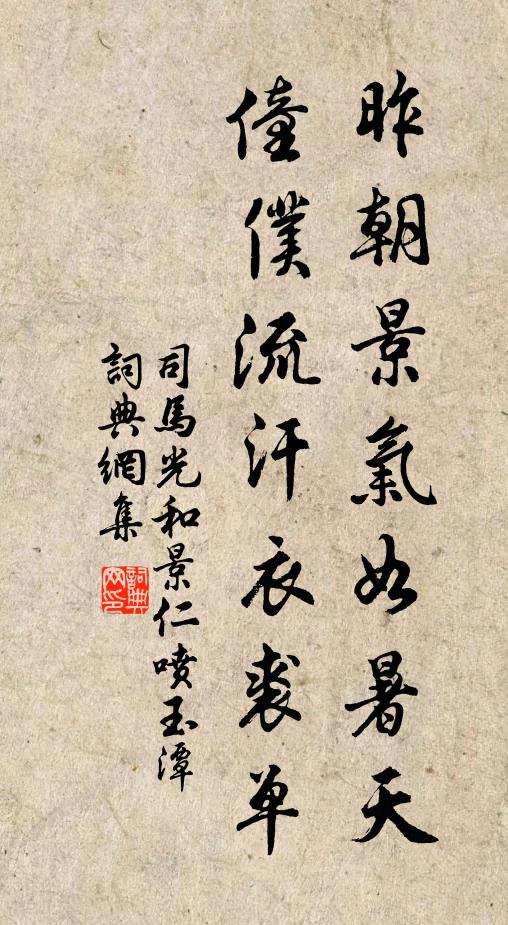 昨朝景氣如暑天
僮僕流汗衣裘単
司馬光和景仁噴玉潭
詞典網集
詞典網印